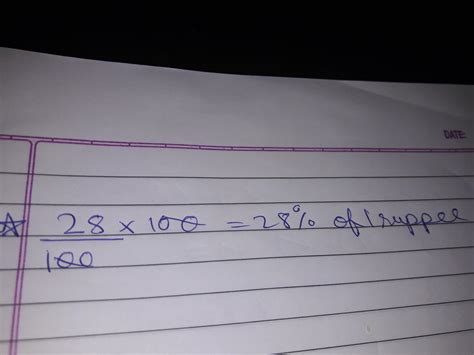 DATE:
☆ 28 × 100 = 28% of 1 ruppee
100